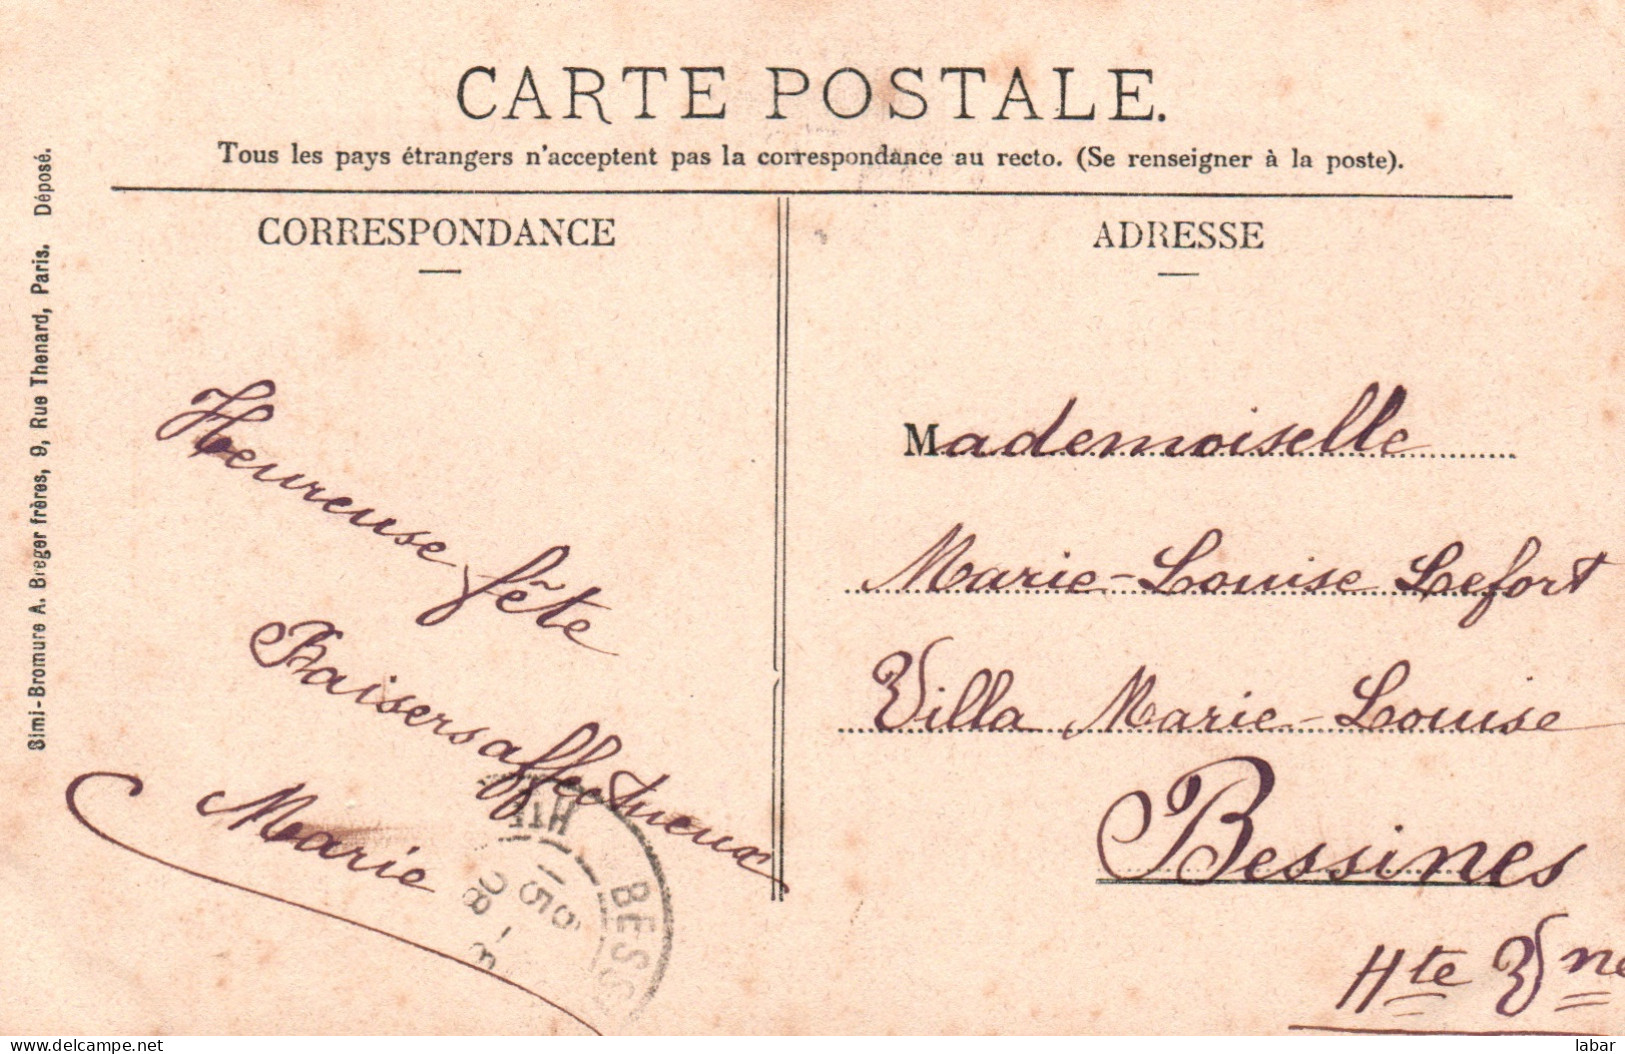 CARTE POSTALE.
Tous les pays étrangers n'acceptent pas la correspondance au recto. (Se renseigner à la poste).
Simi-Bromure A. Breger frères, 9, Rue Thenard, Paris. Déposé.
CORRESPONDANCE
Heureuse fête
Baisers affectueux
Marie
HTE
BESS
15
08
ADRESSE
Mademoiselle
Marie-Louise Lefort
Villa Marie-Louise
Bessines
Hte Vne
www.delcampe.net
labar